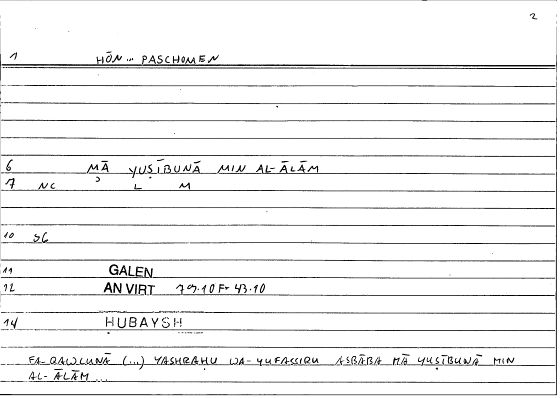 2
1 HŌN ... PASCHOMEN
6 MĀ YUṢĪBUNĀ MIN AL-ĀLĀM
7 NC L M
10 SG
11 GALEN
12 AN VIRT 79.10 Fr 43.10
14 ḤUBAYSH
FA-QAWLUNĀ (...) YASHRAḤU WA-YUFASSIRU ASBĀBA MĀ YUṢĪBUNĀ MIN
AL-ĀLĀM ...